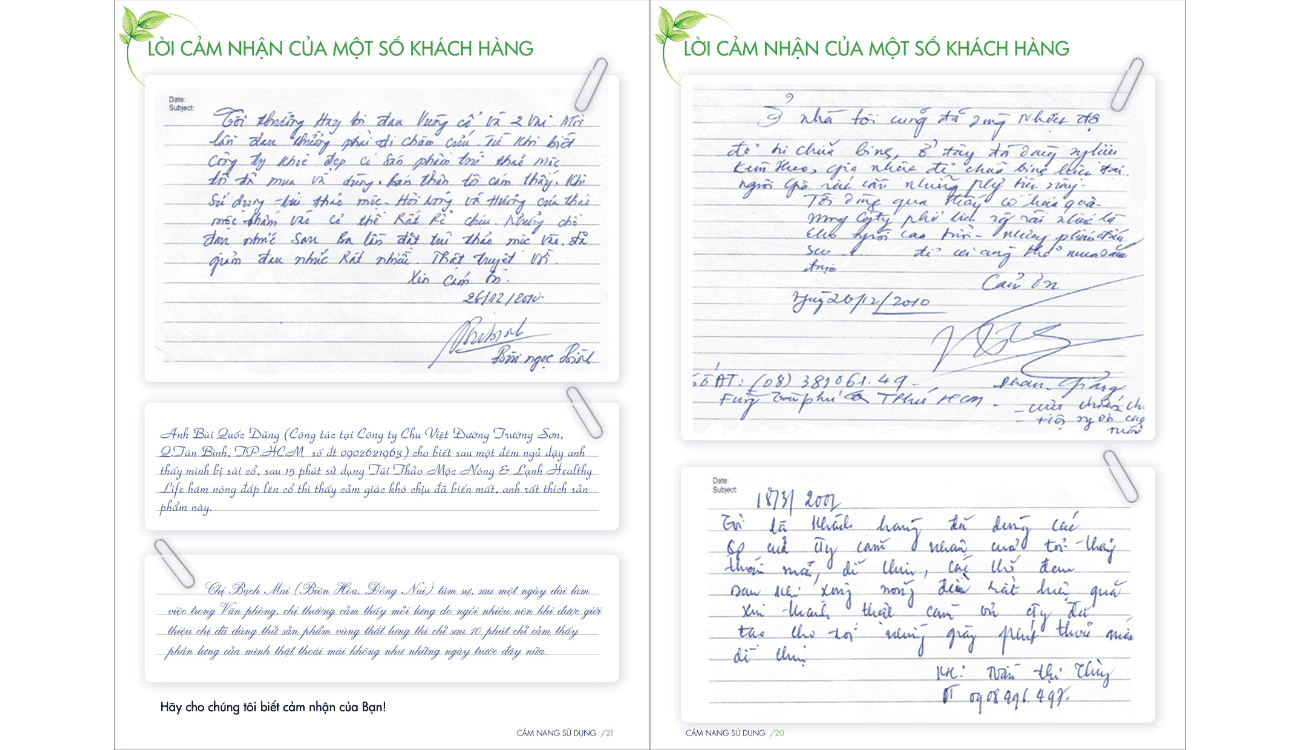 LỜI CẢM NHẬN CỦA MỘT SỐ KHÁCH HÀNG
Date:
Subject:
Tôi thường Hay bị đau Vương cổ và 2 Vai Mỗi
lần đau thường phải đi châm cứu. Từ Khi biết
Công ty Khoẻ đẹp có Sản phẩm túi thảo mộc
tôi đã mua về dùng. bản thân tô cảm thấy. Khi
Sử dụng túi thảo mộc. Hơi nóng và Hương của thảo
mộc thấm vào cơ thể Rất Rễ chịu. Những chỗ
đau nhức Sau Ba lần đặt túi thảo mộc vào. đã
giảm đau nhức Rất nhiều. Thật tuyệt vời.
Xin Cám ơn.
26/12/2010.
Bùi ngọc Bình
Anh Bùi Quốc Dũng (Công tác tại Công ty Chu Việt Đường Trường Sơn,
Q.Tân Bình, TP.HCM số đt 0902621963) cho biết sau một đêm ngủ dậy anh
thấy mình bị sái cổ, sau 15 phút sử dụng Túi Thảo Mộc Nóng & Lạnh Healthy
Life hâm nóng đắp lên cổ thì thấy cảm giác khó chịu đã biến mất, anh rất thích sản
phẩm này.
Chị Bạch Mai (Biên Hòa, Đồng Nai) tâm sự, sau một ngày dài làm
việc trong Văn phòng, chị thường cảm thấy mỏi lưng do ngồi nhiều nên khi được giới
thiệu chị đã dùng thử sản phẩm vùng thắt lưng thì chỉ sau 10 phút chị cảm thấy
phần lưng của mình thật thoải mái không như những ngày trước đây nữa.
Hãy cho chúng tôi biết cảm nhận của Bạn!
CẨM NANG SỬ DỤNG /21
LỜI CẢM NHẬN CỦA MỘT SỐ KHÁCH HÀNG
Ở nhà tôi cũng đã dùng Nhiều
để trị chữa bệnh, Ở đây đã dùng
người già rất cần những
Tôi dùng qua thấy có hiệu quả.
mong Cty phổ biến rộng rãi nhất là
cho người cao tuổi
Cảm ơn
Ngày 26/12/2010
Số ĐT: (08) 381061.49
Date:
Subject:
18/3/2001
Tôi là Khách hàng đã dùng các
Sp của Cty cảm nhận của tôi thấy
thoải mái, dễ chịu,
sau khi xong nóng rất hiệu quả
xin thành thật cảm ơn cty đã
tạo cho tôi những giây phút thoải mái
dễ chịu
KH: Trần thị Thùy
ĐT 0908496.497.
CẨM NANG SỬ DỤNG /20